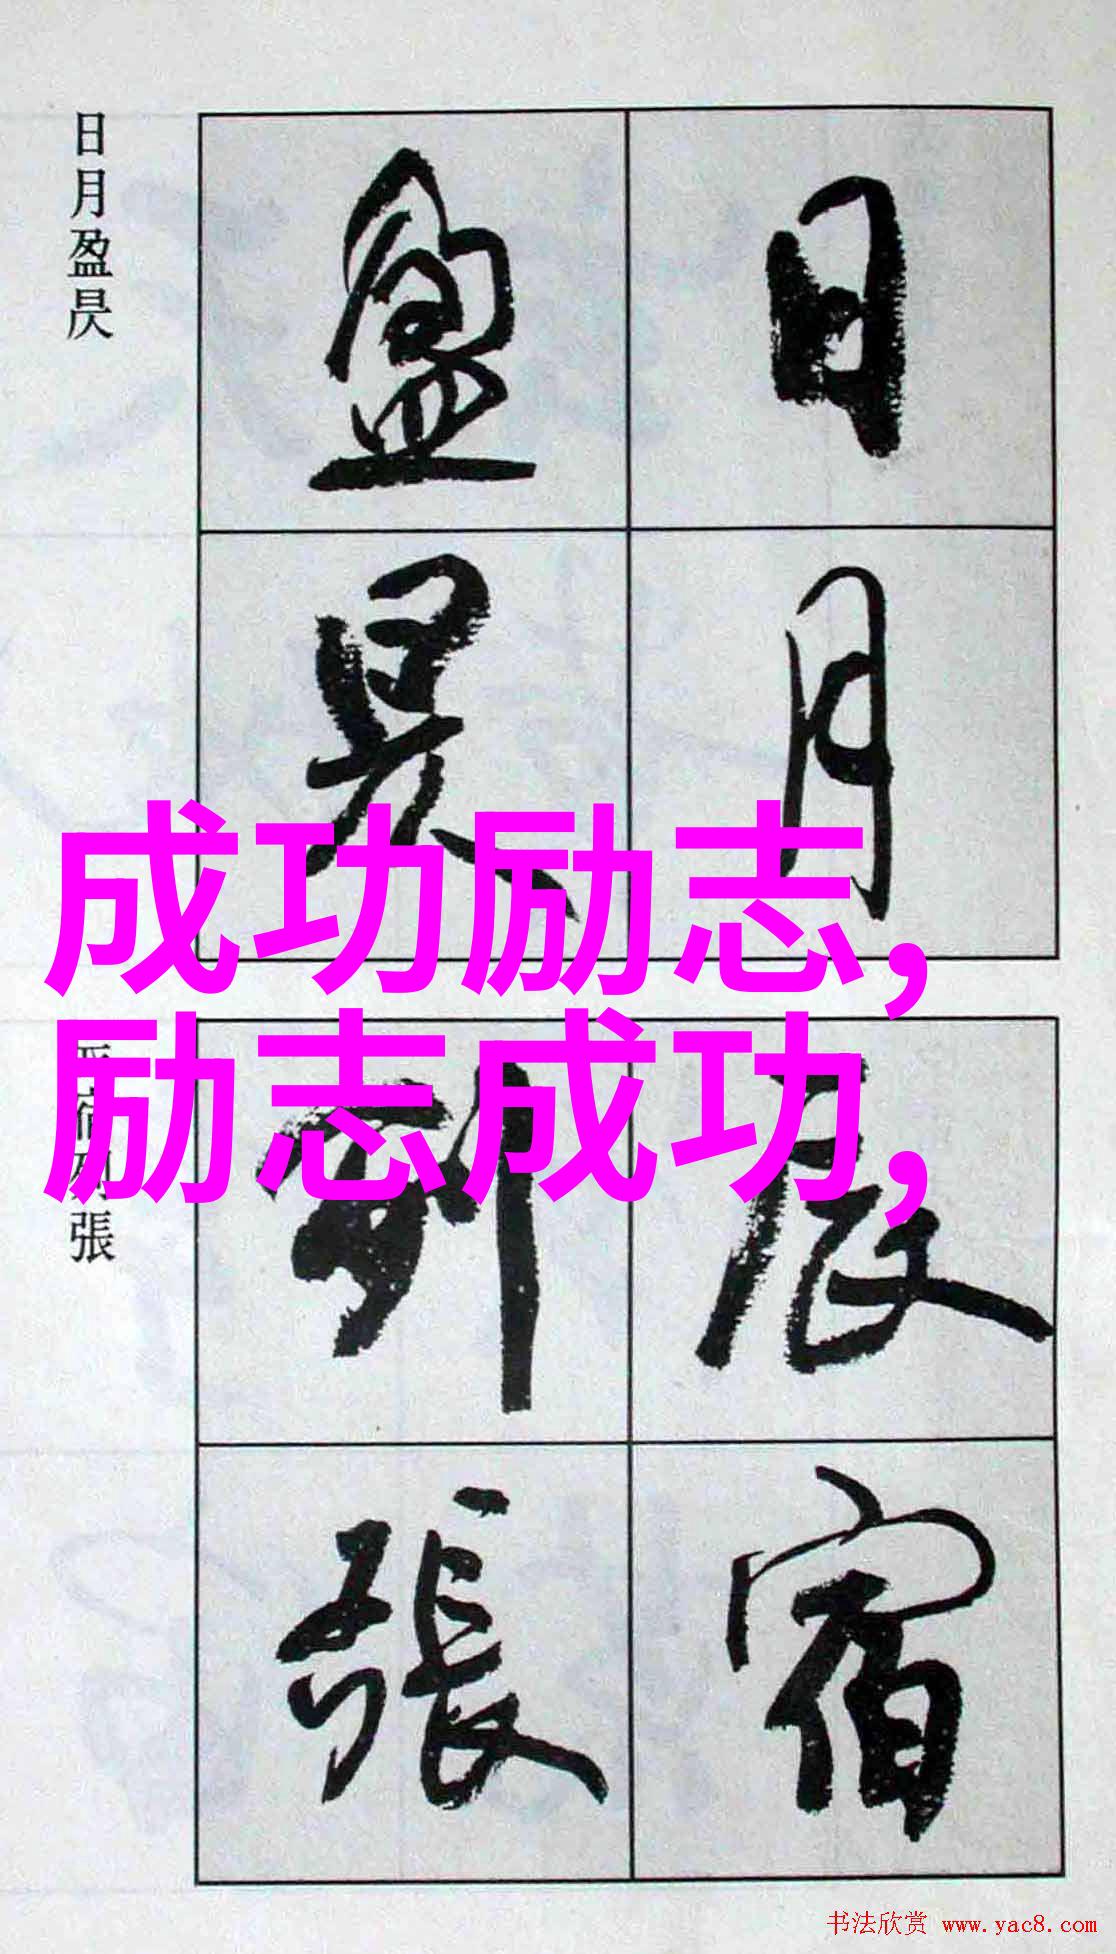 日月
盈昃
日月盈昃
成功励志,
励志成功,
辰宿
列張
辰宿列張
书法欣赏 www.yac8.com